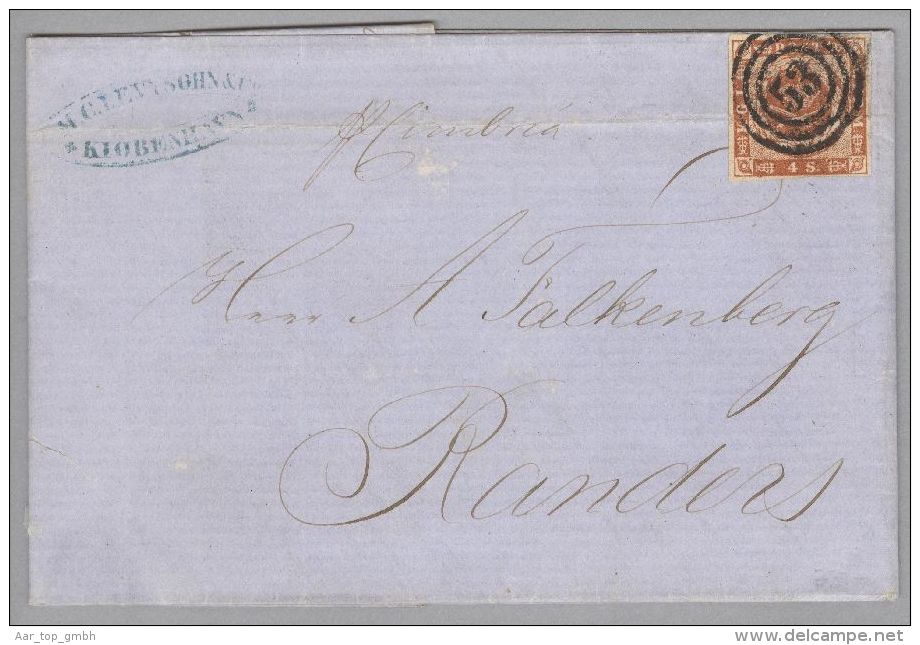 M.C. LEVYSOHN & Co
* KIOBENHAVN *
53
4 S.
Cimbria
Herr A Falkenberg
Randers
Aar_top_gmbh
www.delcampe.net